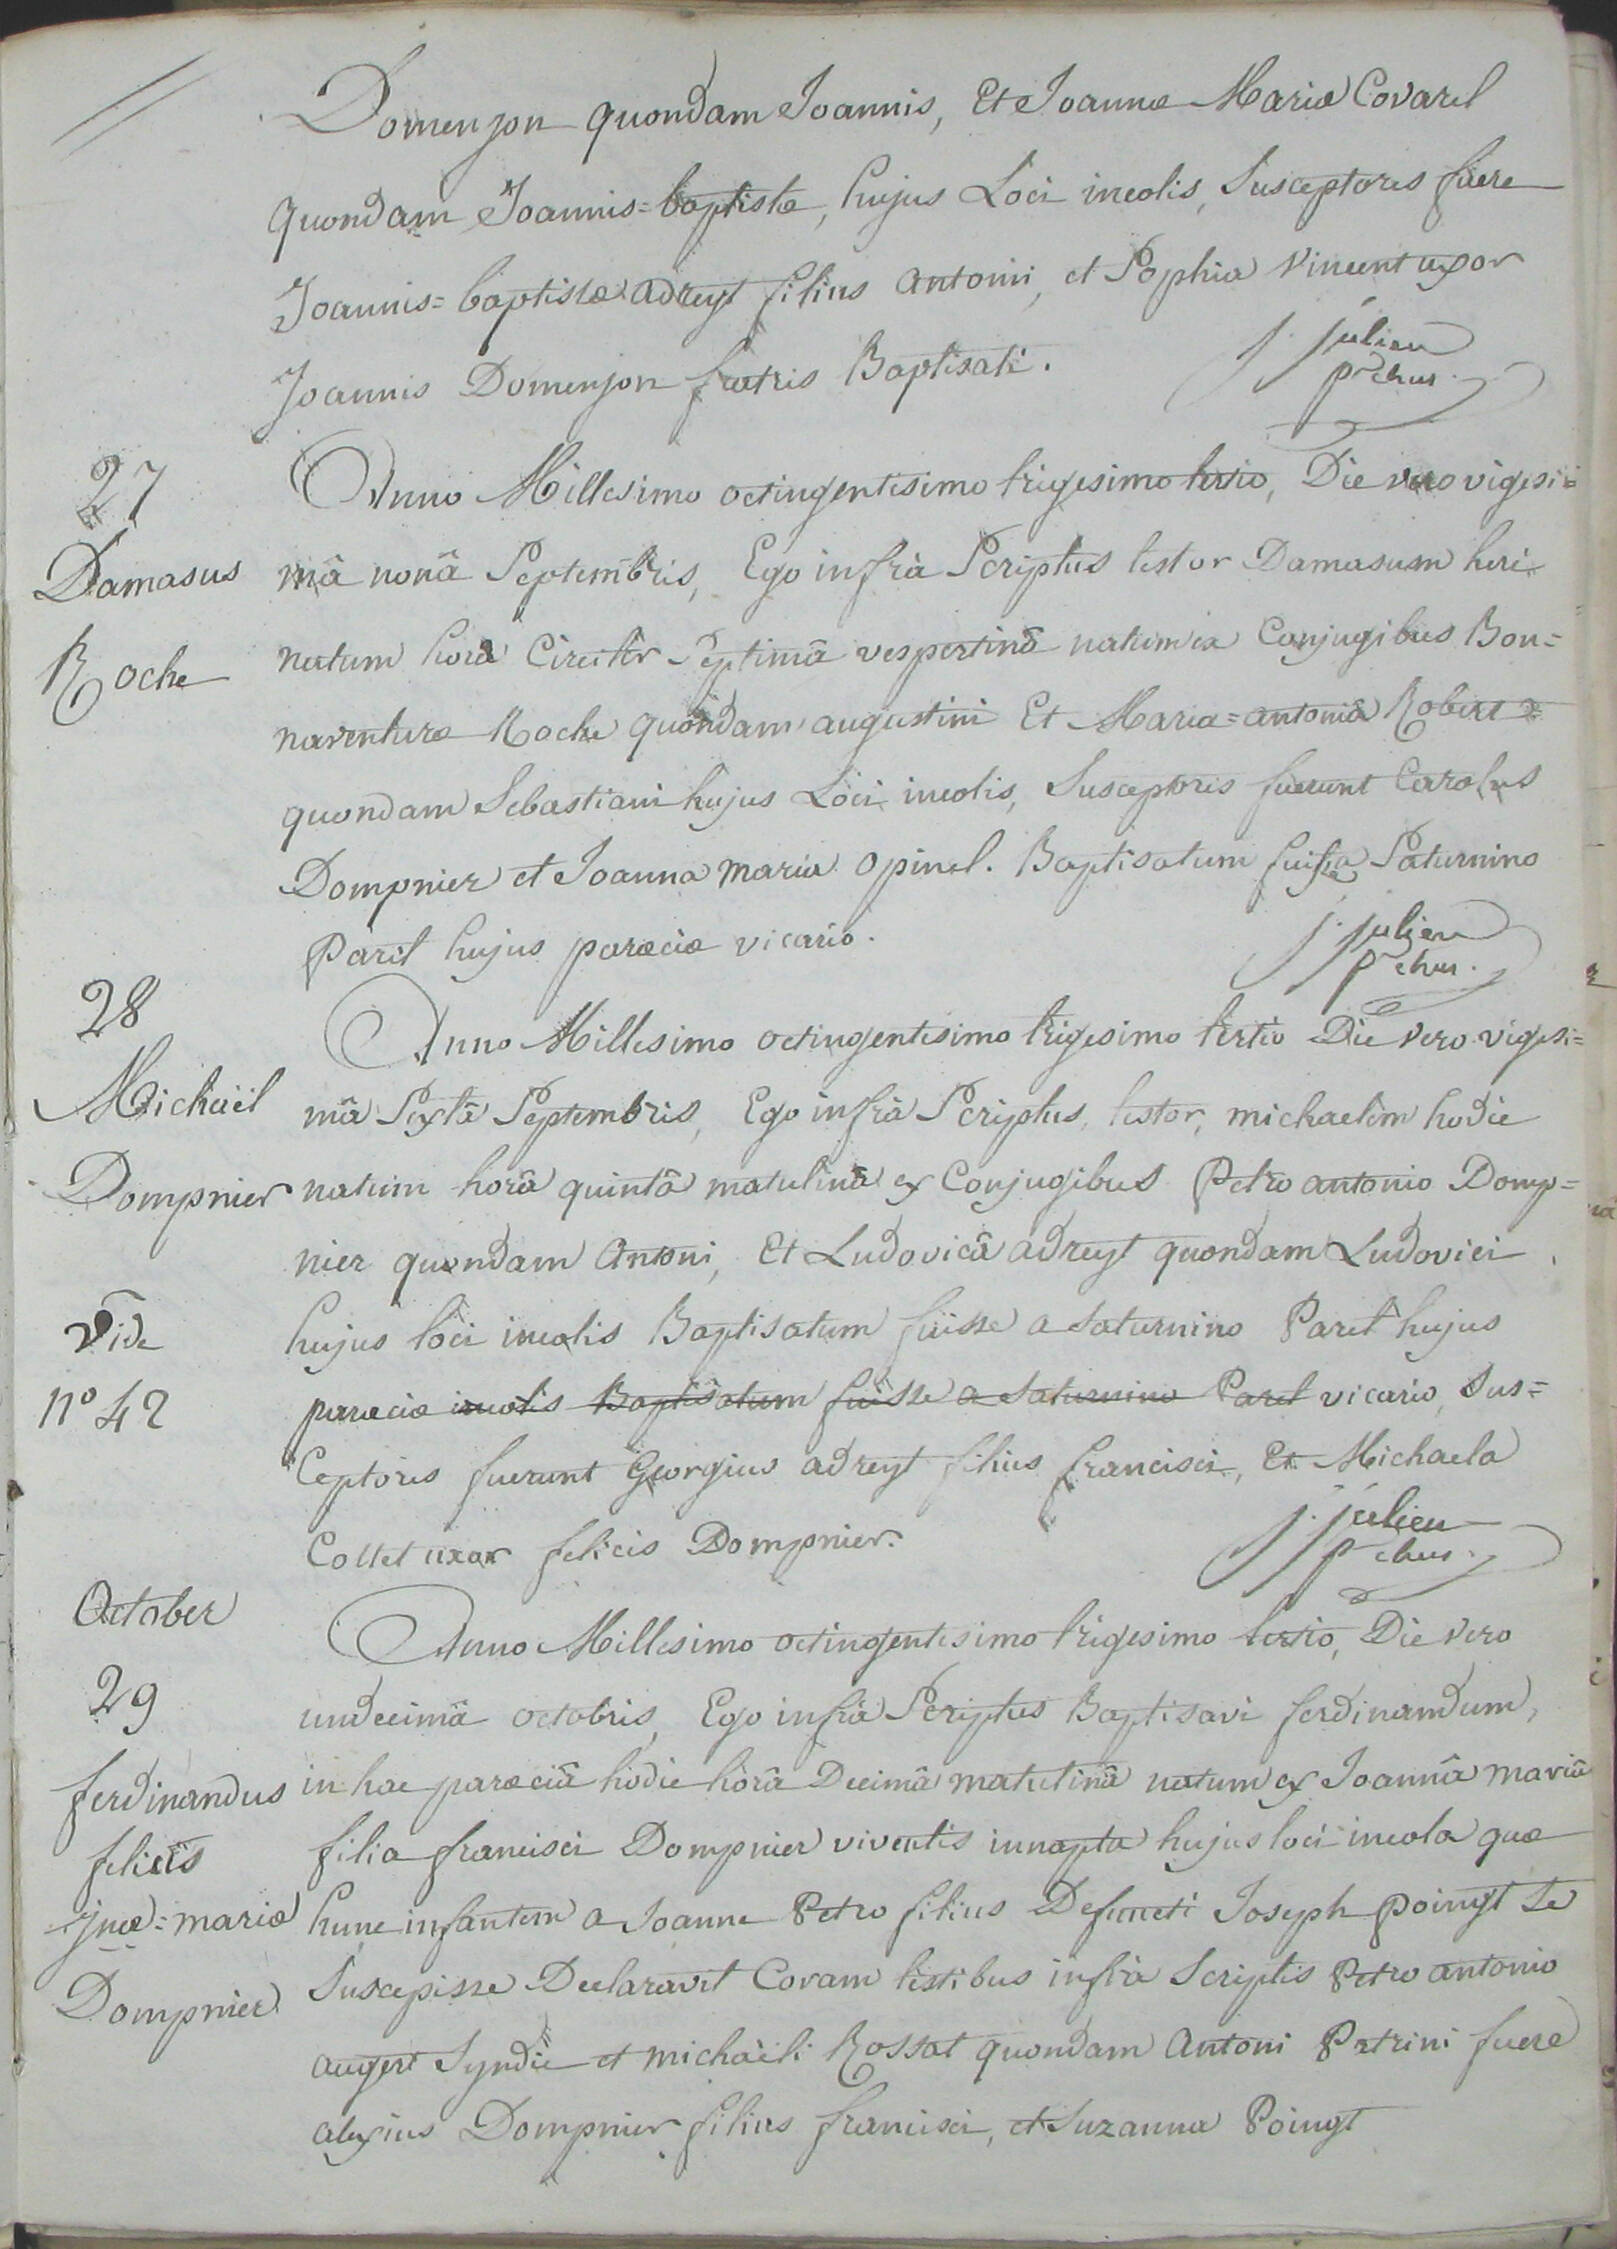 Domenjon quondam Joannis, Et Joannæ Mariæ Covarel
quondam Joannis=baptistæ, hujus Loci incolis, Susceptores fuere
Joannis=baptistæ adreyt filius antonii, et Sophia Vincent uxor
Joannis Domenjon fratris Baptisati.
j. julien
pr chus.
27
Damasus
Roche
Anno Millesimo octingentesimo trigesimo tertio, Die vero vigesi=
mâ nonâ Septembris, Ego infrà Scriptus testor Damasum heri
natum horâ Circiter Septimâ vespertinâ natum ex Conjugibus Bon=
naventura Roche quondam augustini Et Maria=antoniâ Robert
quondam Sebastiani hujus Loci incolis, Susceptores fuerunt Carolus
Dompnier et Joanna maria opinel. Baptisatum fuisse a Saturnino
Paret hujus paræciæ vicario.
j. julien
pr chus.
28
Michaël
Dompnier
Vide
n° 42
Anno Millesimo octingentesimo trigesimo tertio Die vero vigesi=
mâ Sextâ Septembris, Ego infrà Scriptus, testor, michaelem hodie
natum horâ quintâ matutinâ ex Conjugibus Petro antonio Domp=
nier quondam Antoni, Et Ludovicâ adreyt quondam Ludovici
hujus loci incolis Baptisatum fuisse a Saturnino Paret hujus
paræciæ incolis Baptisatum fuisse a Saturnino Paret vicario, Sus=
Ceptores fuerunt Georgius adreyt filius francisci, Et Michaela
Collet uxor felicis Dompnier.
j. julien
pr chus.
October
29
ferdinandus
feliciis
jnæ=mariæ
Dompnier
Anno Millesimo octingentesimo trigesimo tertio, Die vero
undecimâ octobris, Ego infrà Scriptus Baptisavi ferdinandum,
in hac paræciâ hodie horâ Decimâ matutinâ natum ex Joannâ mariâ
filia francisci Dompnier viventis innupta hujus loci incola quæ
hunc infantem a Joanne Petro filius Defuncti Joseph Poingt Se
Suscepisse Declaravit Coram testibus infrà Scriptis Petro antonio
augert Syndic et michaëli Rossat quondam Antoni Patrini fuere
alexius Dompnier filius francisci, et Suzanna Poingt